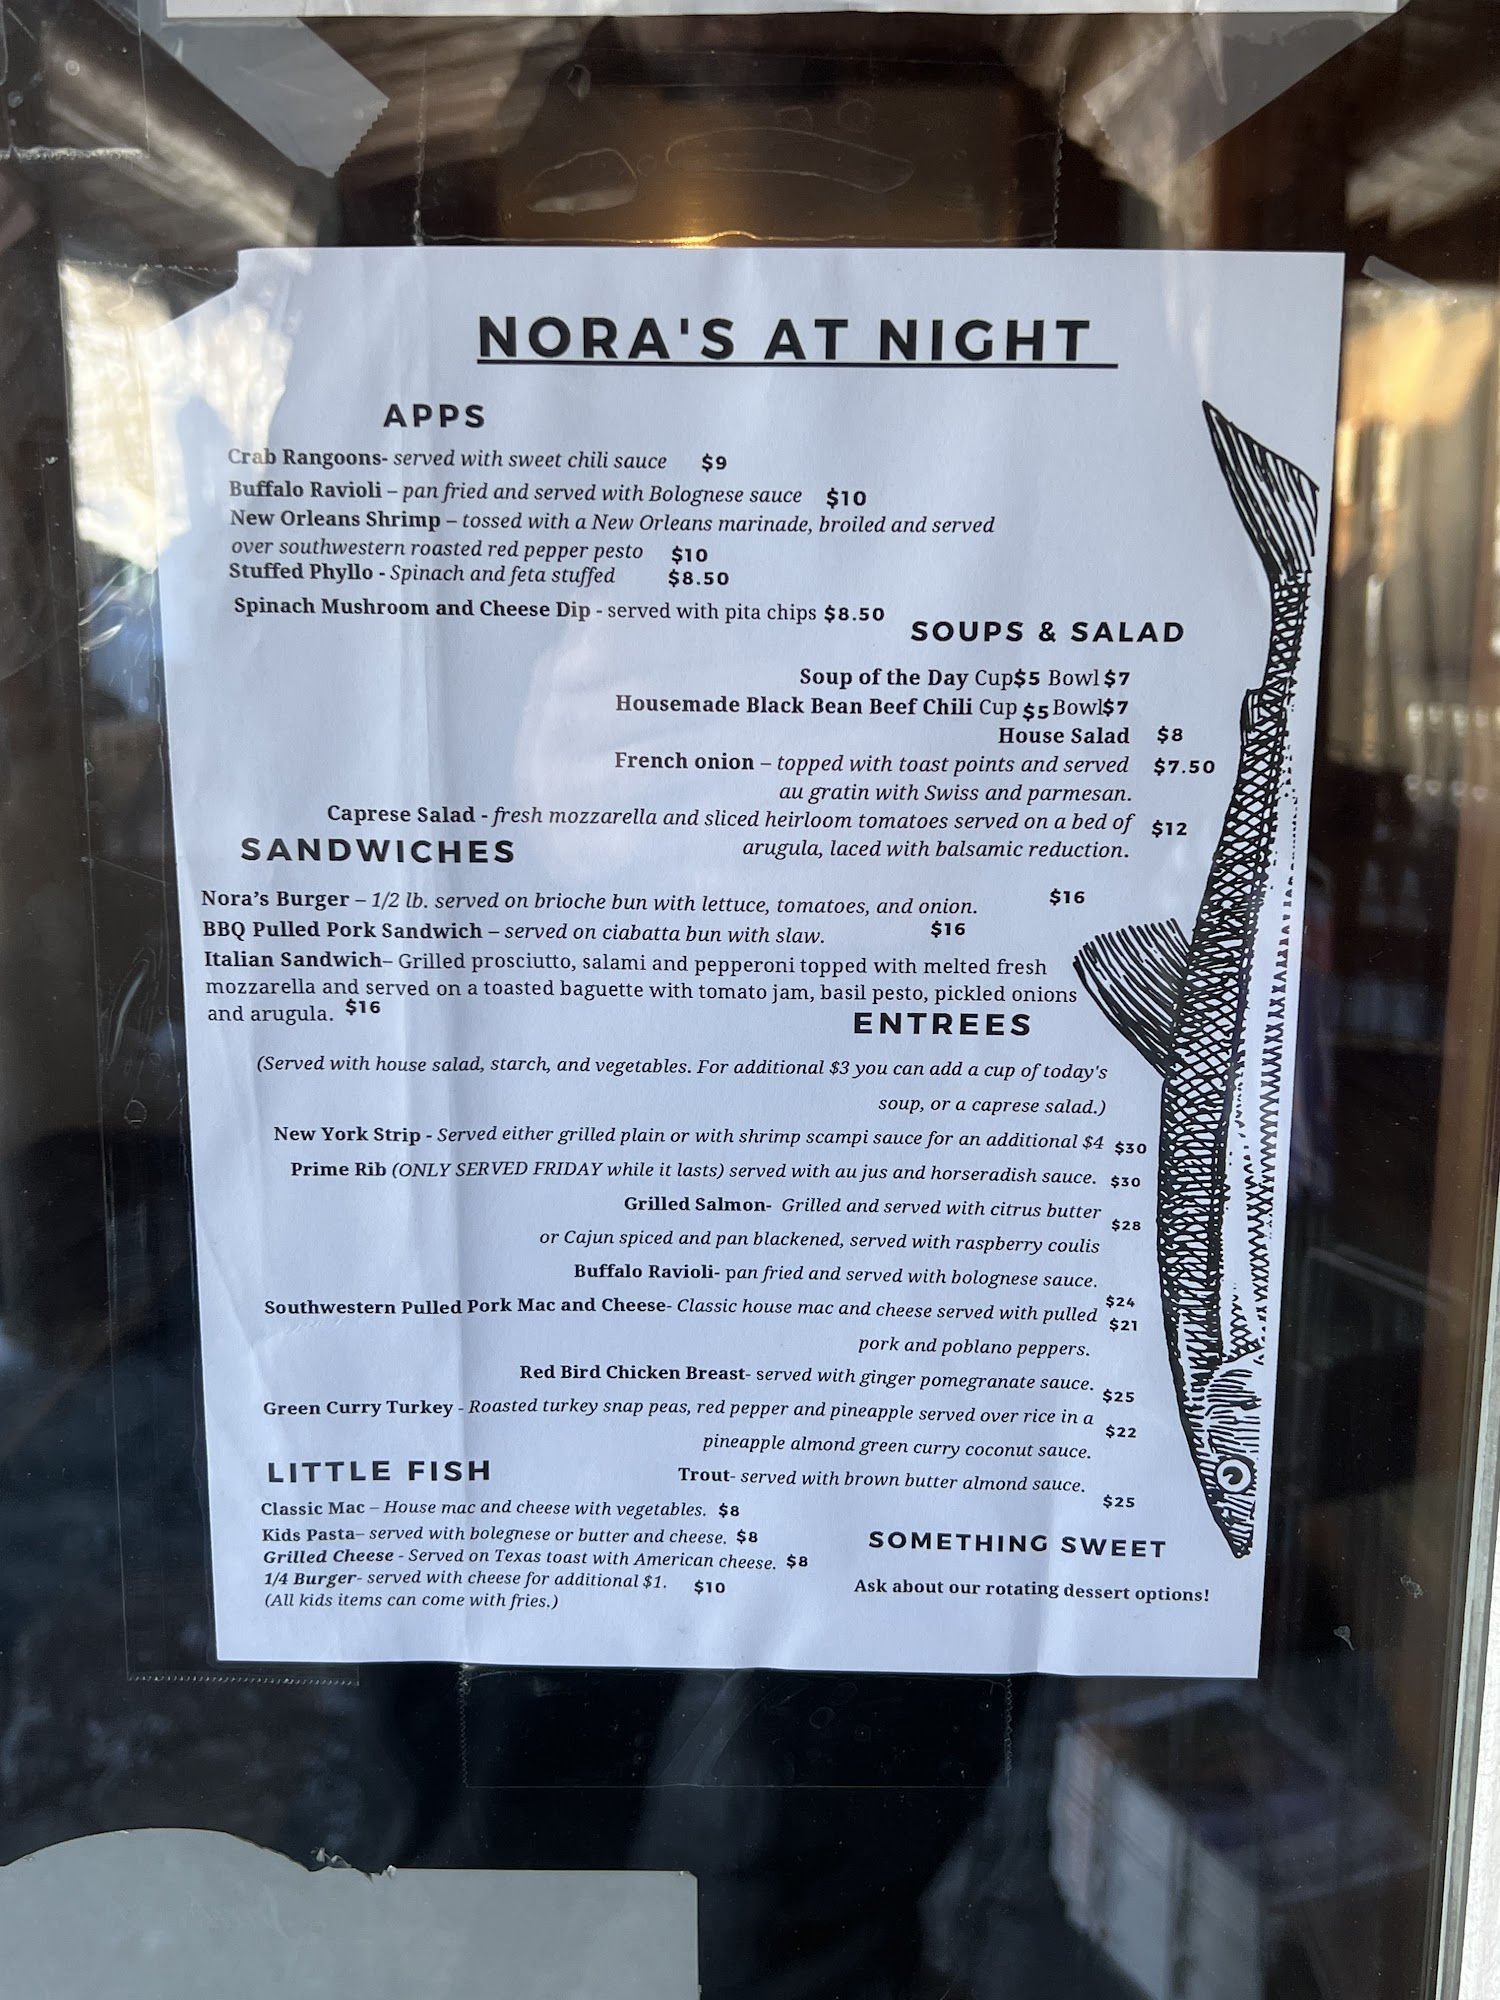 NORA'S AT NIGHT
APPS
Crab Rangoons- served with sweet chili sauce $9
Buffalo Ravioli – pan fried and served with Bolognese sauce $10
New Orleans Shrimp – tossed with a New Orleans marinade, broiled and served
over southwestern roasted red pepper pesto $10
Stuffed Phyllo - Spinach and feta stuffed $8.50
Spinach Mushroom and Cheese Dip - served with pita chips $8.50
SOUPS & SALAD
Soup of the Day Cup$5 Bowl $7
Housemade Black Bean Beef Chili Cup $5 Bowl$7
House Salad $8
French onion – topped with toast points and served $7.50
au gratin with Swiss and parmesan.
Caprese Salad - fresh mozzarella and sliced heirloom tomatoes served on a bed of $12
arugula, laced with balsamic reduction.
SANDWICHES
Nora's Burger – 1/2 lb. served on brioche bun with lettuce, tomatoes, and onion. $16
BBQ Pulled Pork Sandwich – served on ciabatta bun with slaw. $16
Italian Sandwich– Grilled prosciutto, salami and pepperoni topped with melted fresh
mozzarella and served on a toasted baguette with tomato jam, basil pesto, pickled onions
and arugula. $16
ENTREES
(Served with house salad, starch, and vegetables. For additional $3 you can add a cup of today's
soup, or a caprese salad.)
New York Strip - Served either grilled plain or with shrimp scampi sauce for an additional $4 $30
Prime Rib (ONLY SERVED FRIDAY while it lasts) served with au jus and horseradish sauce. $30
Grilled Salmon- Grilled and served with citrus butter
$28
or Cajun spiced and pan blackened, served with raspberry coulis
Buffalo Ravioli- pan fried and served with bolognese sauce.
$24
Southwestern Pulled Pork Mac and Cheese- Classic house mac and cheese served with pulled
$21
pork and poblano peppers.
Red Bird Chicken Breast- served with ginger pomegranate sauce.
$25
Green Curry Turkey - Roasted turkey snap peas, red pepper and pineapple served over rice in a
$22
pineapple almond green curry coconut sauce.
Trout- served with brown butter almond sauce.
$25
LITTLE FISH
Classic Mac – House mac and cheese with vegetables. $8
Kids Pasta– served with bolegnese or butter and cheese. $8
Grilled Cheese - Served on Texas toast with American cheese. $8
1/4 Burger- served with cheese for additional $1. $10
(All kids items can come with fries.)
SOMETHING SWEET
Ask about our rotating dessert options!